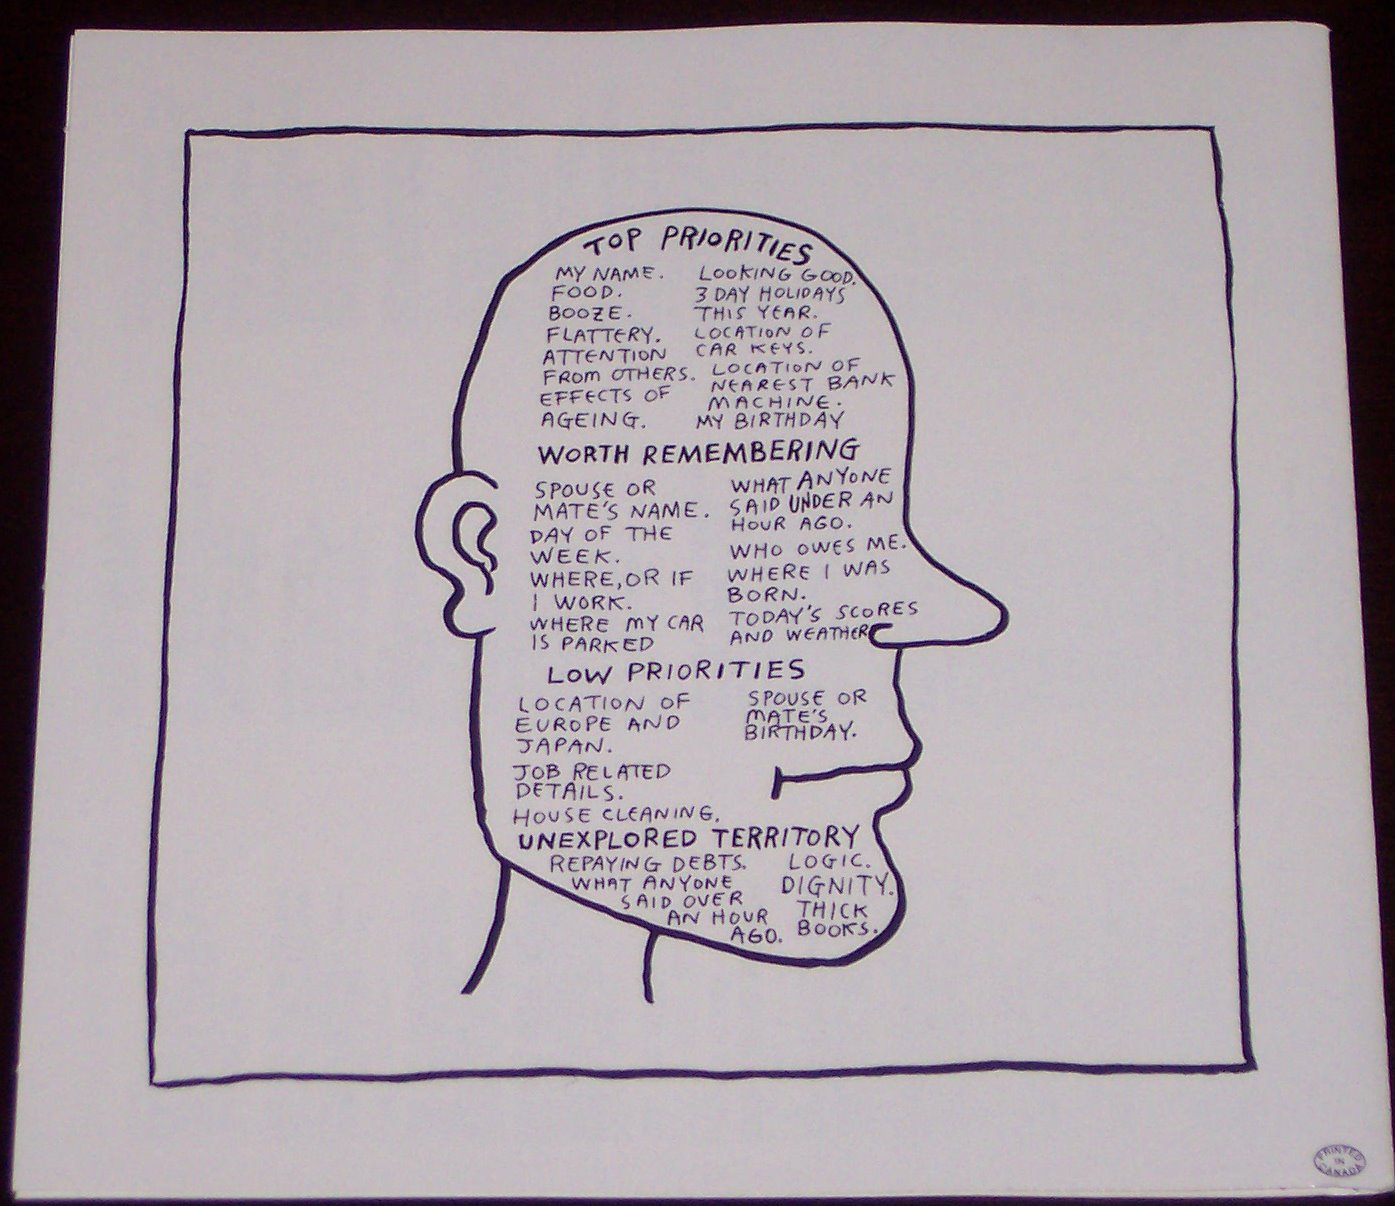 TOP PRIORITIES
MY NAME.
FOOD.
BOOZE.
FLATTERY.
ATTENTION
FROM OTHERS.
EFFECTS OF
AGEING.
LOOKING GOOD.
3 DAY HOLIDAYS
THIS YEAR.
LOCATION OF
CAR KEYS.
LOCATION OF
NEAREST BANK
MACHINE.
MY BIRTHDAY
WORTH REMEMBERING
SPOUSE OR
MATE'S NAME.
DAY OF THE
WEEK.
WHERE, OR IF
I WORK.
WHERE MY CAR
IS PARKED
WHAT ANYONE
SAID UNDER AN
HOUR AGO.
WHO OWES ME.
WHERE I WAS
BORN.
TODAY'S SCORES
AND WEATHER
LOW PRIORITIES
LOCATION OF
EUROPE AND
JAPAN.
JOB RELATED
DETAILS.
HOUSE CLEANING.
SPOUSE OR
MATE'S
BIRTHDAY.
UNEXPLORED TERRITORY
REPAYING DEBTS.
WHAT ANYONE
SAID OVER
AN HOUR
AGO.
LOGIC.
DIGNITY.
THICK
BOOKS.
PRINTED
IN
CANADA